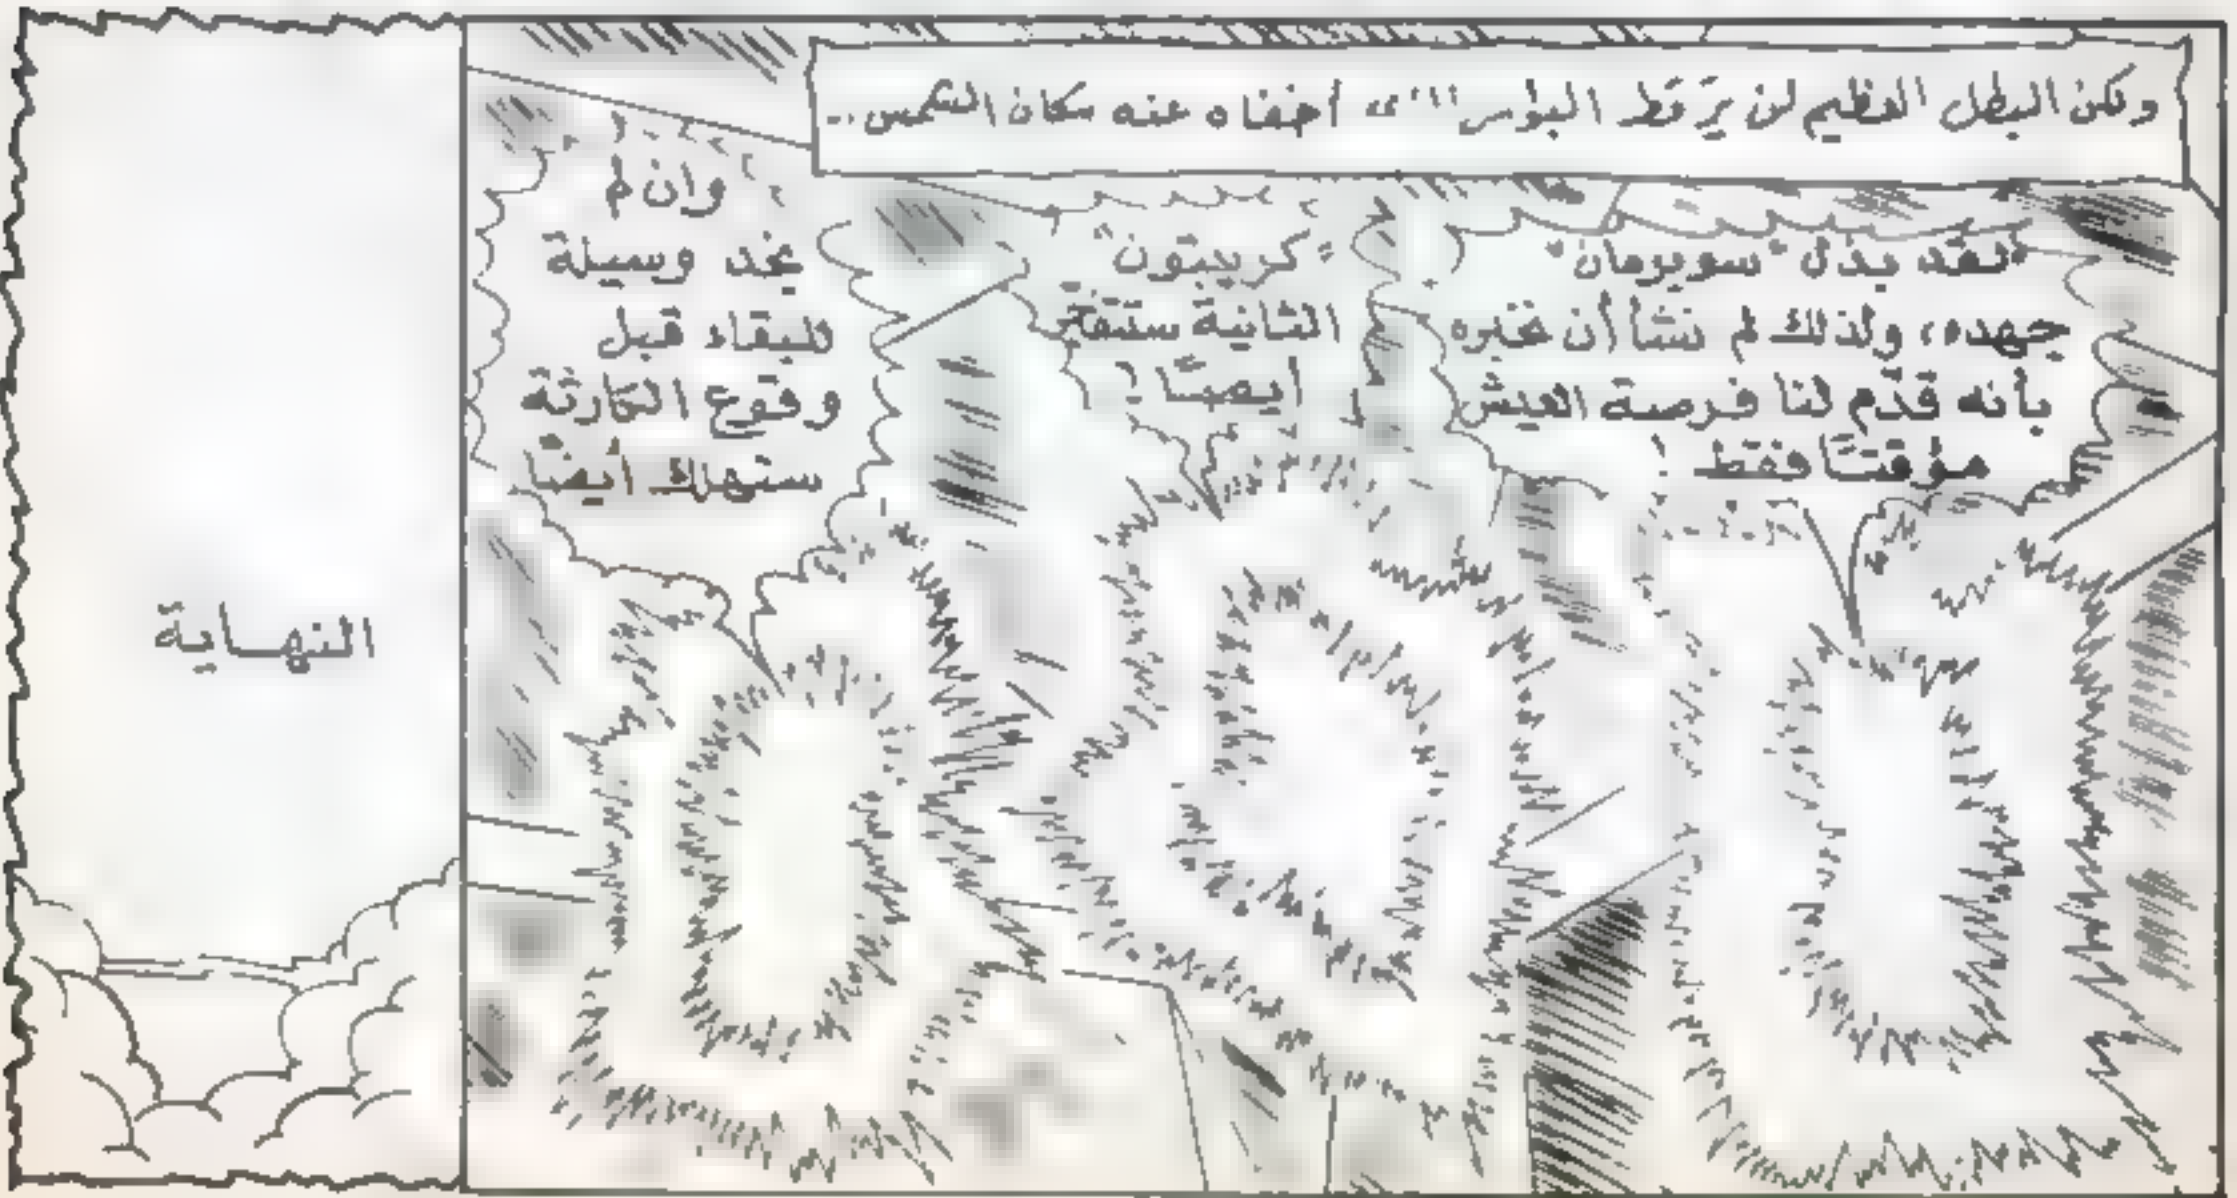 ولكن البطل العظيم لن يَر قط البؤس أخفاه عنه سكان الشمس..
لقد بذل "سوبرمان"
جهده، ولذلك لم نشأ أن نخبره
بأنه قدّم لنا فرصة العيش
مؤقتًا فقط!
"كريبتون"
الثانية ستنفجر
أيضًا!
وان لم
نجد وسيلة
للبقاء قبل
وقوع الكارثة
ستهلك أيضًا
النهاية